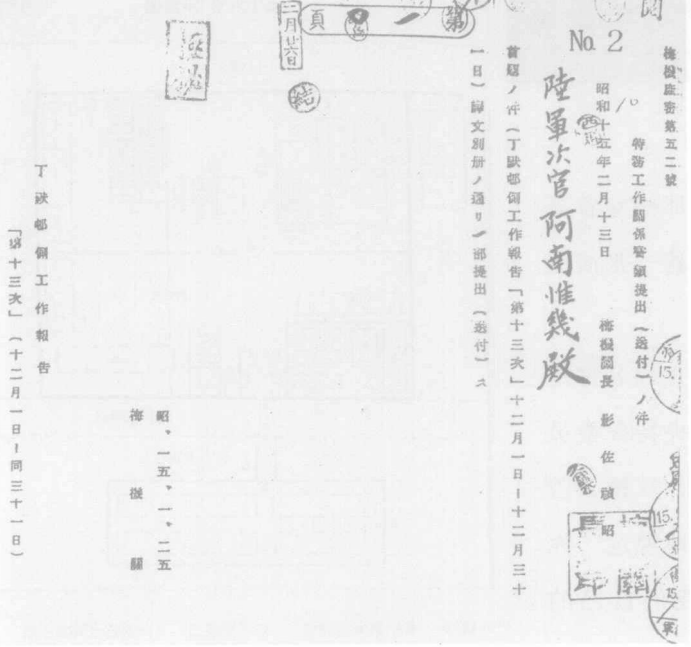 No. 2
梅機庶密第五二號
特務工作關係書類提出（送付）ノ件
昭和十五年二月十三日
梅機關長 影佐禎昭
陸軍次官阿南惟幾殿
首題ノ件（丁默邨側工作報告「第十三次」十二月一日ー十二月三十
一日）譯文別册ノ通リ一部提出（送付）ス
第
頁
二月廿六日
結
丁默邨側工作報告
「第十三次」（十二月一日ー同三十一日）
昭、一五、一、二五
梅機關